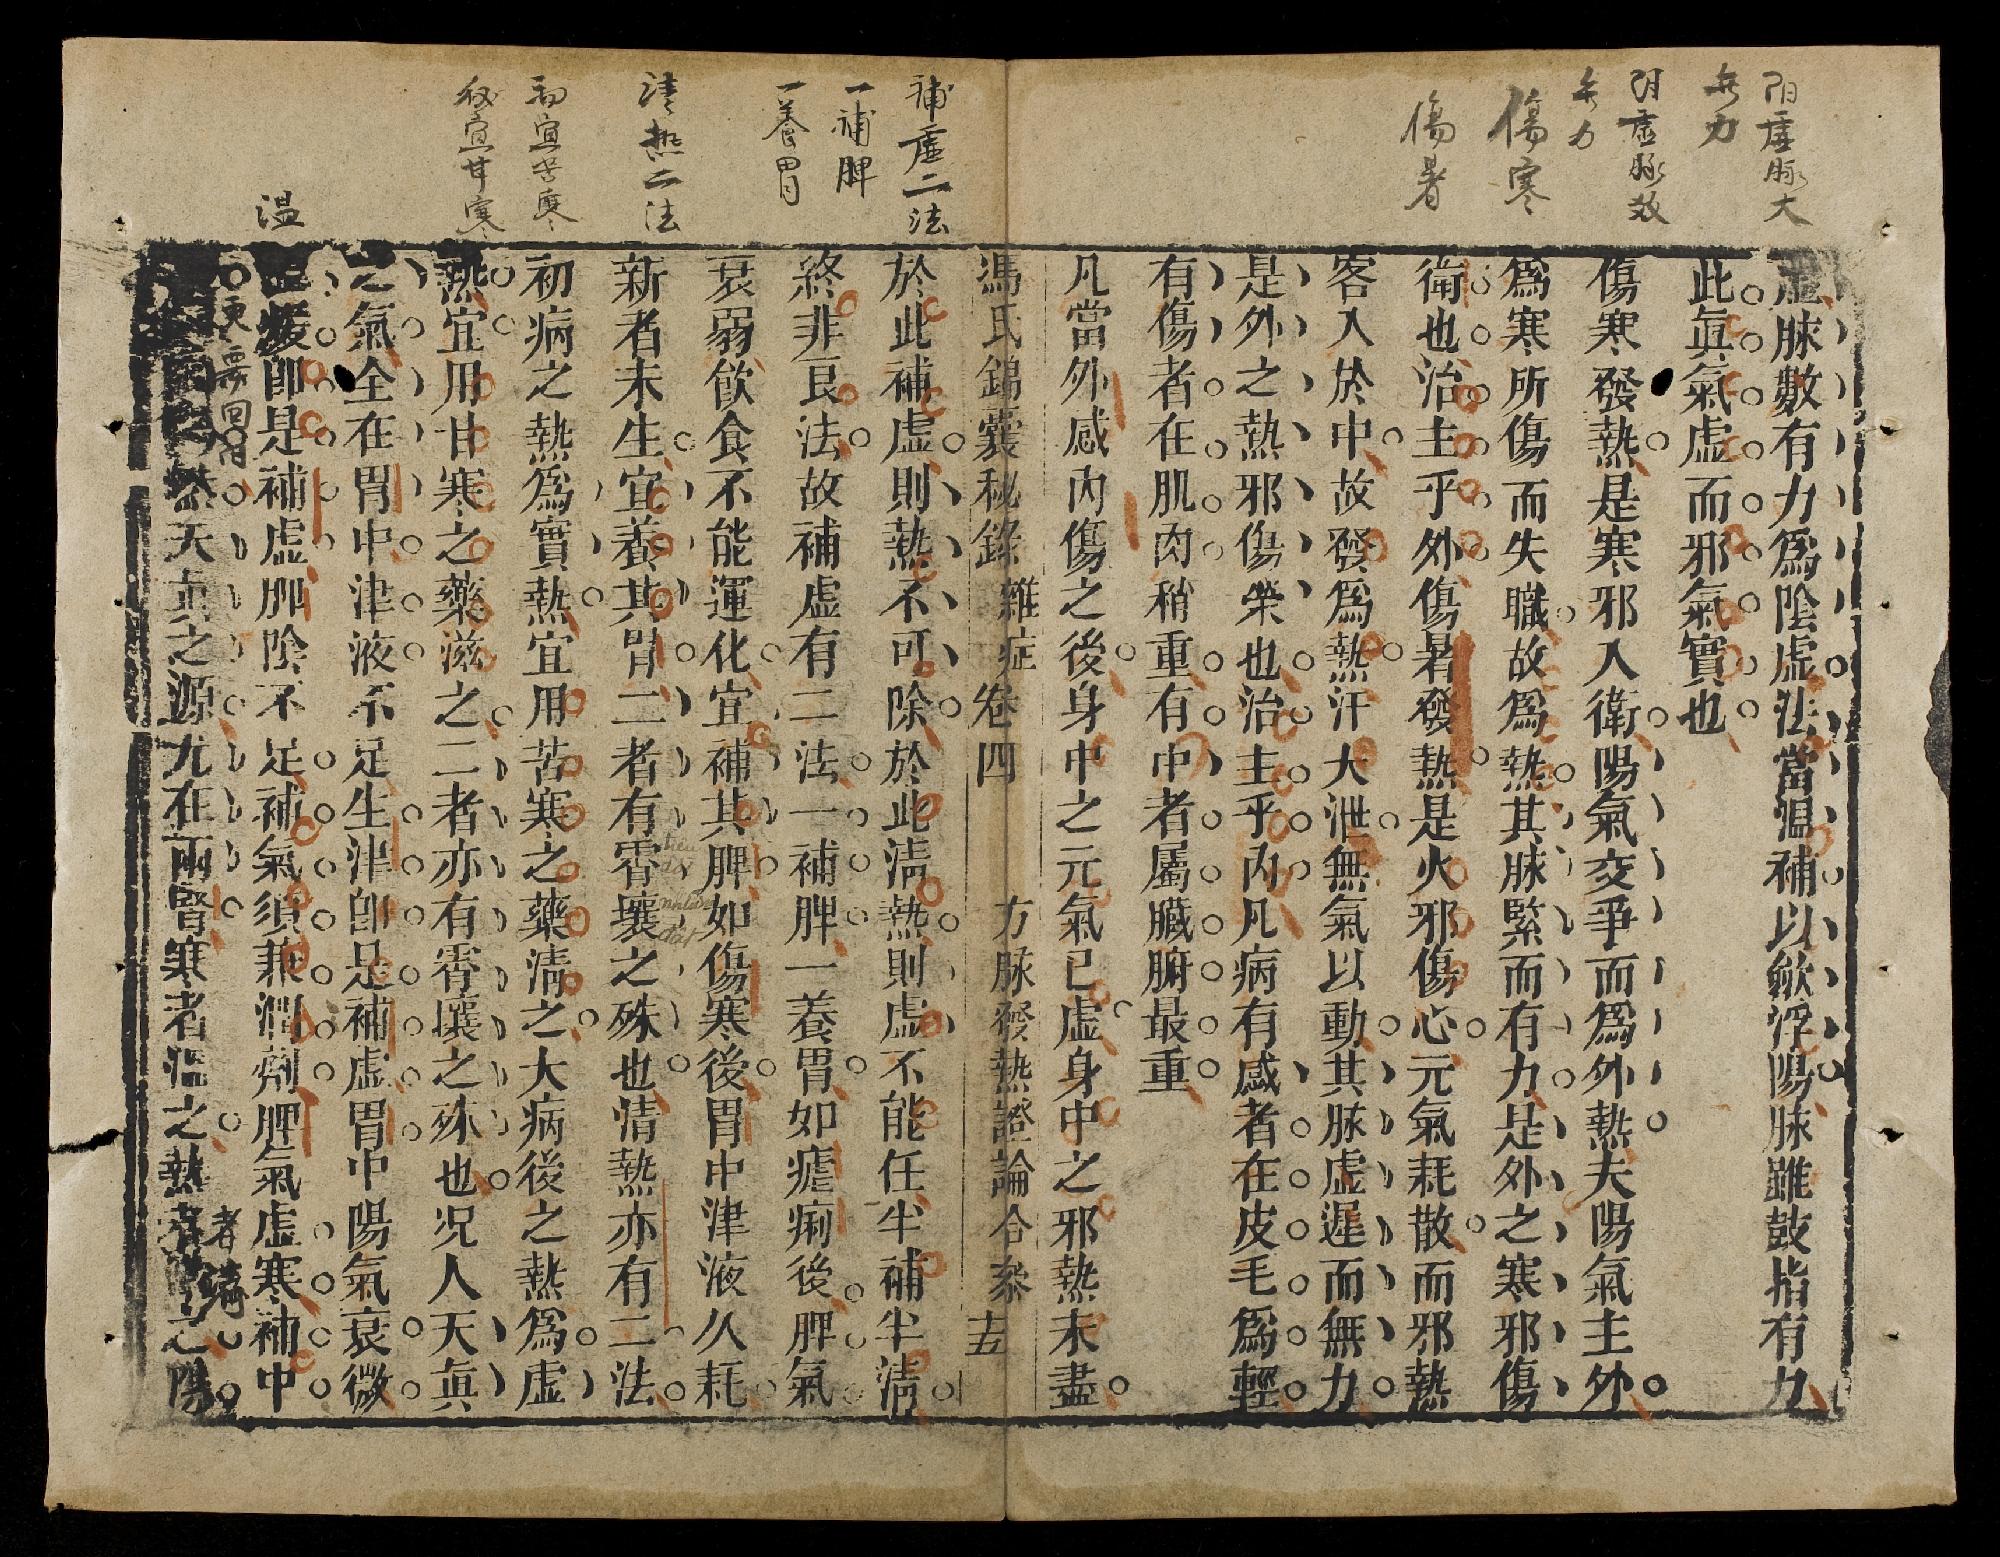 阳虚脉大
無力
阴虚脉数
無力
傷寒
傷暑
虛脉數有力爲陰虛法當温補以斂浮陽脉雖鼓指有力
此眞氣虛而邪氣實也
傷寒發熱是寒邪入衛陽氣交爭而爲外熱夫陽氣主外
爲寒所傷而失職故爲熱其脉緊而有力是外之寒邪傷
衛也治主乎外傷暑發熱是火邪傷心元氣耗散而邪熱
客入於中故發爲熱汗大泄無氣以動其脉虛遲而無力
是外之熱邪傷榮也治主乎內凡病有感者在皮毛爲輕
有傷者在肌肉稍重有中者屬臟腑最重
凡當外感內傷之後身中之元氣已虛身中之邪熱未盡
馮氏錦囊秘錄 雜症 卷四 方脉發熱證論合叅 十五
補虛二法
一補脾
一養胃
清热二法
初宜苦寒
後宜甘寒
温
於此補虛則熱不可除於此清熱則虛不能任半補半清
終非良法故補虛有二法一補脾一養胃如瘧痢後脾氣
衰弱飲食不能運化宜補其脾如傷寒後胃中津液久耗
新者未生宜養其胃二者有霄壤之殊也清熱亦有二法
初病之熱爲實熱宜用苦寒之藥清之大病後之熱爲虛
熱宜用甘寒之藥滋之二者亦有霄壤之殊也况人天眞
之氣全在胃中津液不足生津卽是補虛胃中陽氣衰微
温煖卽是補虛脾陰不足補氣須兼潤劑脾氣虛寒補中
更要回陽
然天眞之源尤在兩腎寒者温之熱者滋之陽
者滿
tiêu
đất